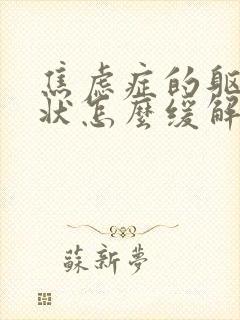 焦虑症的躯
状怎麼缓解
蘇新夢